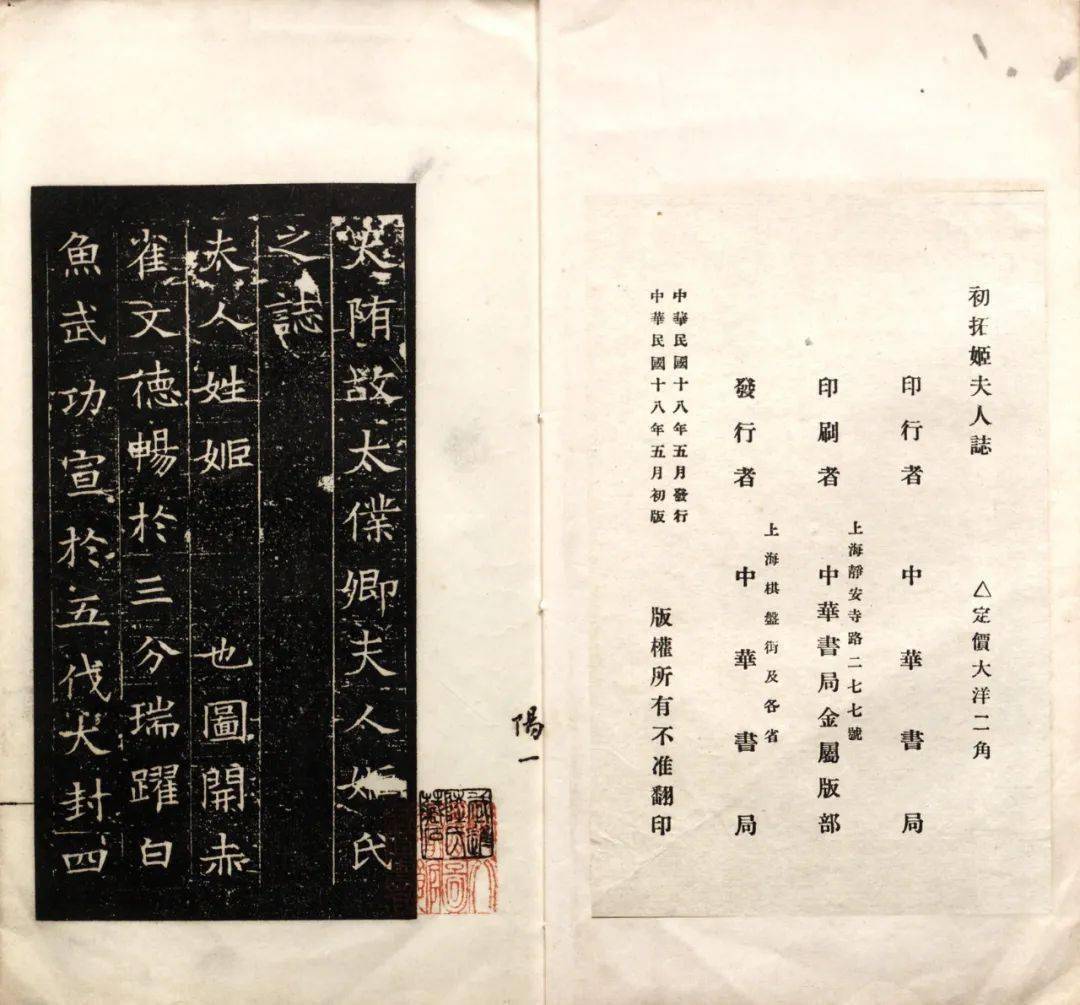 初拓姬夫人誌
△定價大洋二角
印行者 中華書局
上海靜安寺路二七七號
印刷者 中華書局金屬版部
上海棋盤街及各省
發行者 中華書局
中華民國十八年五月發行
中華民國十八年五月初版
版權所有不准翻印
大隋故太僕卿夫人姬氏
之誌
夫人姓姬 也圖開赤
雀文德暢於三分瑞躍白
魚武功宣於五伐犬封四
陽一